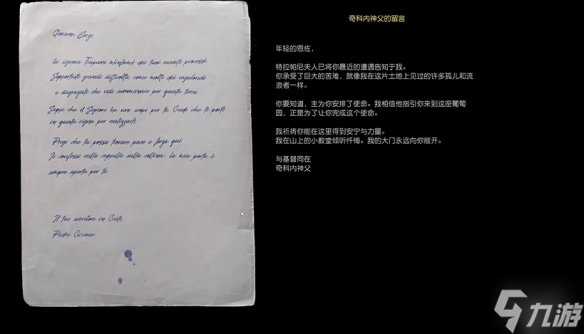 Giovane Enzo,
La signora Trapani m'informò dei tuoi recenti processi.
Sopportasti grandi difficoltà, come molti dei vagabondi
e
che vidi camminare per questa terra.
Sappi che il Signore ha uno scopo per te. Credo che ti portò
in questa vigna per realizzarlo.
Prego che tu possa trovare pace e forza qui.
Io confesso nella cappella sulla collina: la mia porta è
sempre aperta per te.
Il tuo servitore in Cristo
Padre
奇科内神父的留言
年轻的恩佐，
特拉帕尼夫人已将你最近的遭遇告知于我。
你承受了巨大的苦难，就像我在这片土地上见过的许多孤儿和流
浪者一样。
你要知道，主为你安排了使命。我相信他指引你来到这座葡萄
园，正是为了让你完成这个使命。
我祈祷你能在这里得到安宁与力量。
我在山上的小教堂倾听忏悔。我的大门永远向你敞开。
与基督同在
奇科内神父
九游